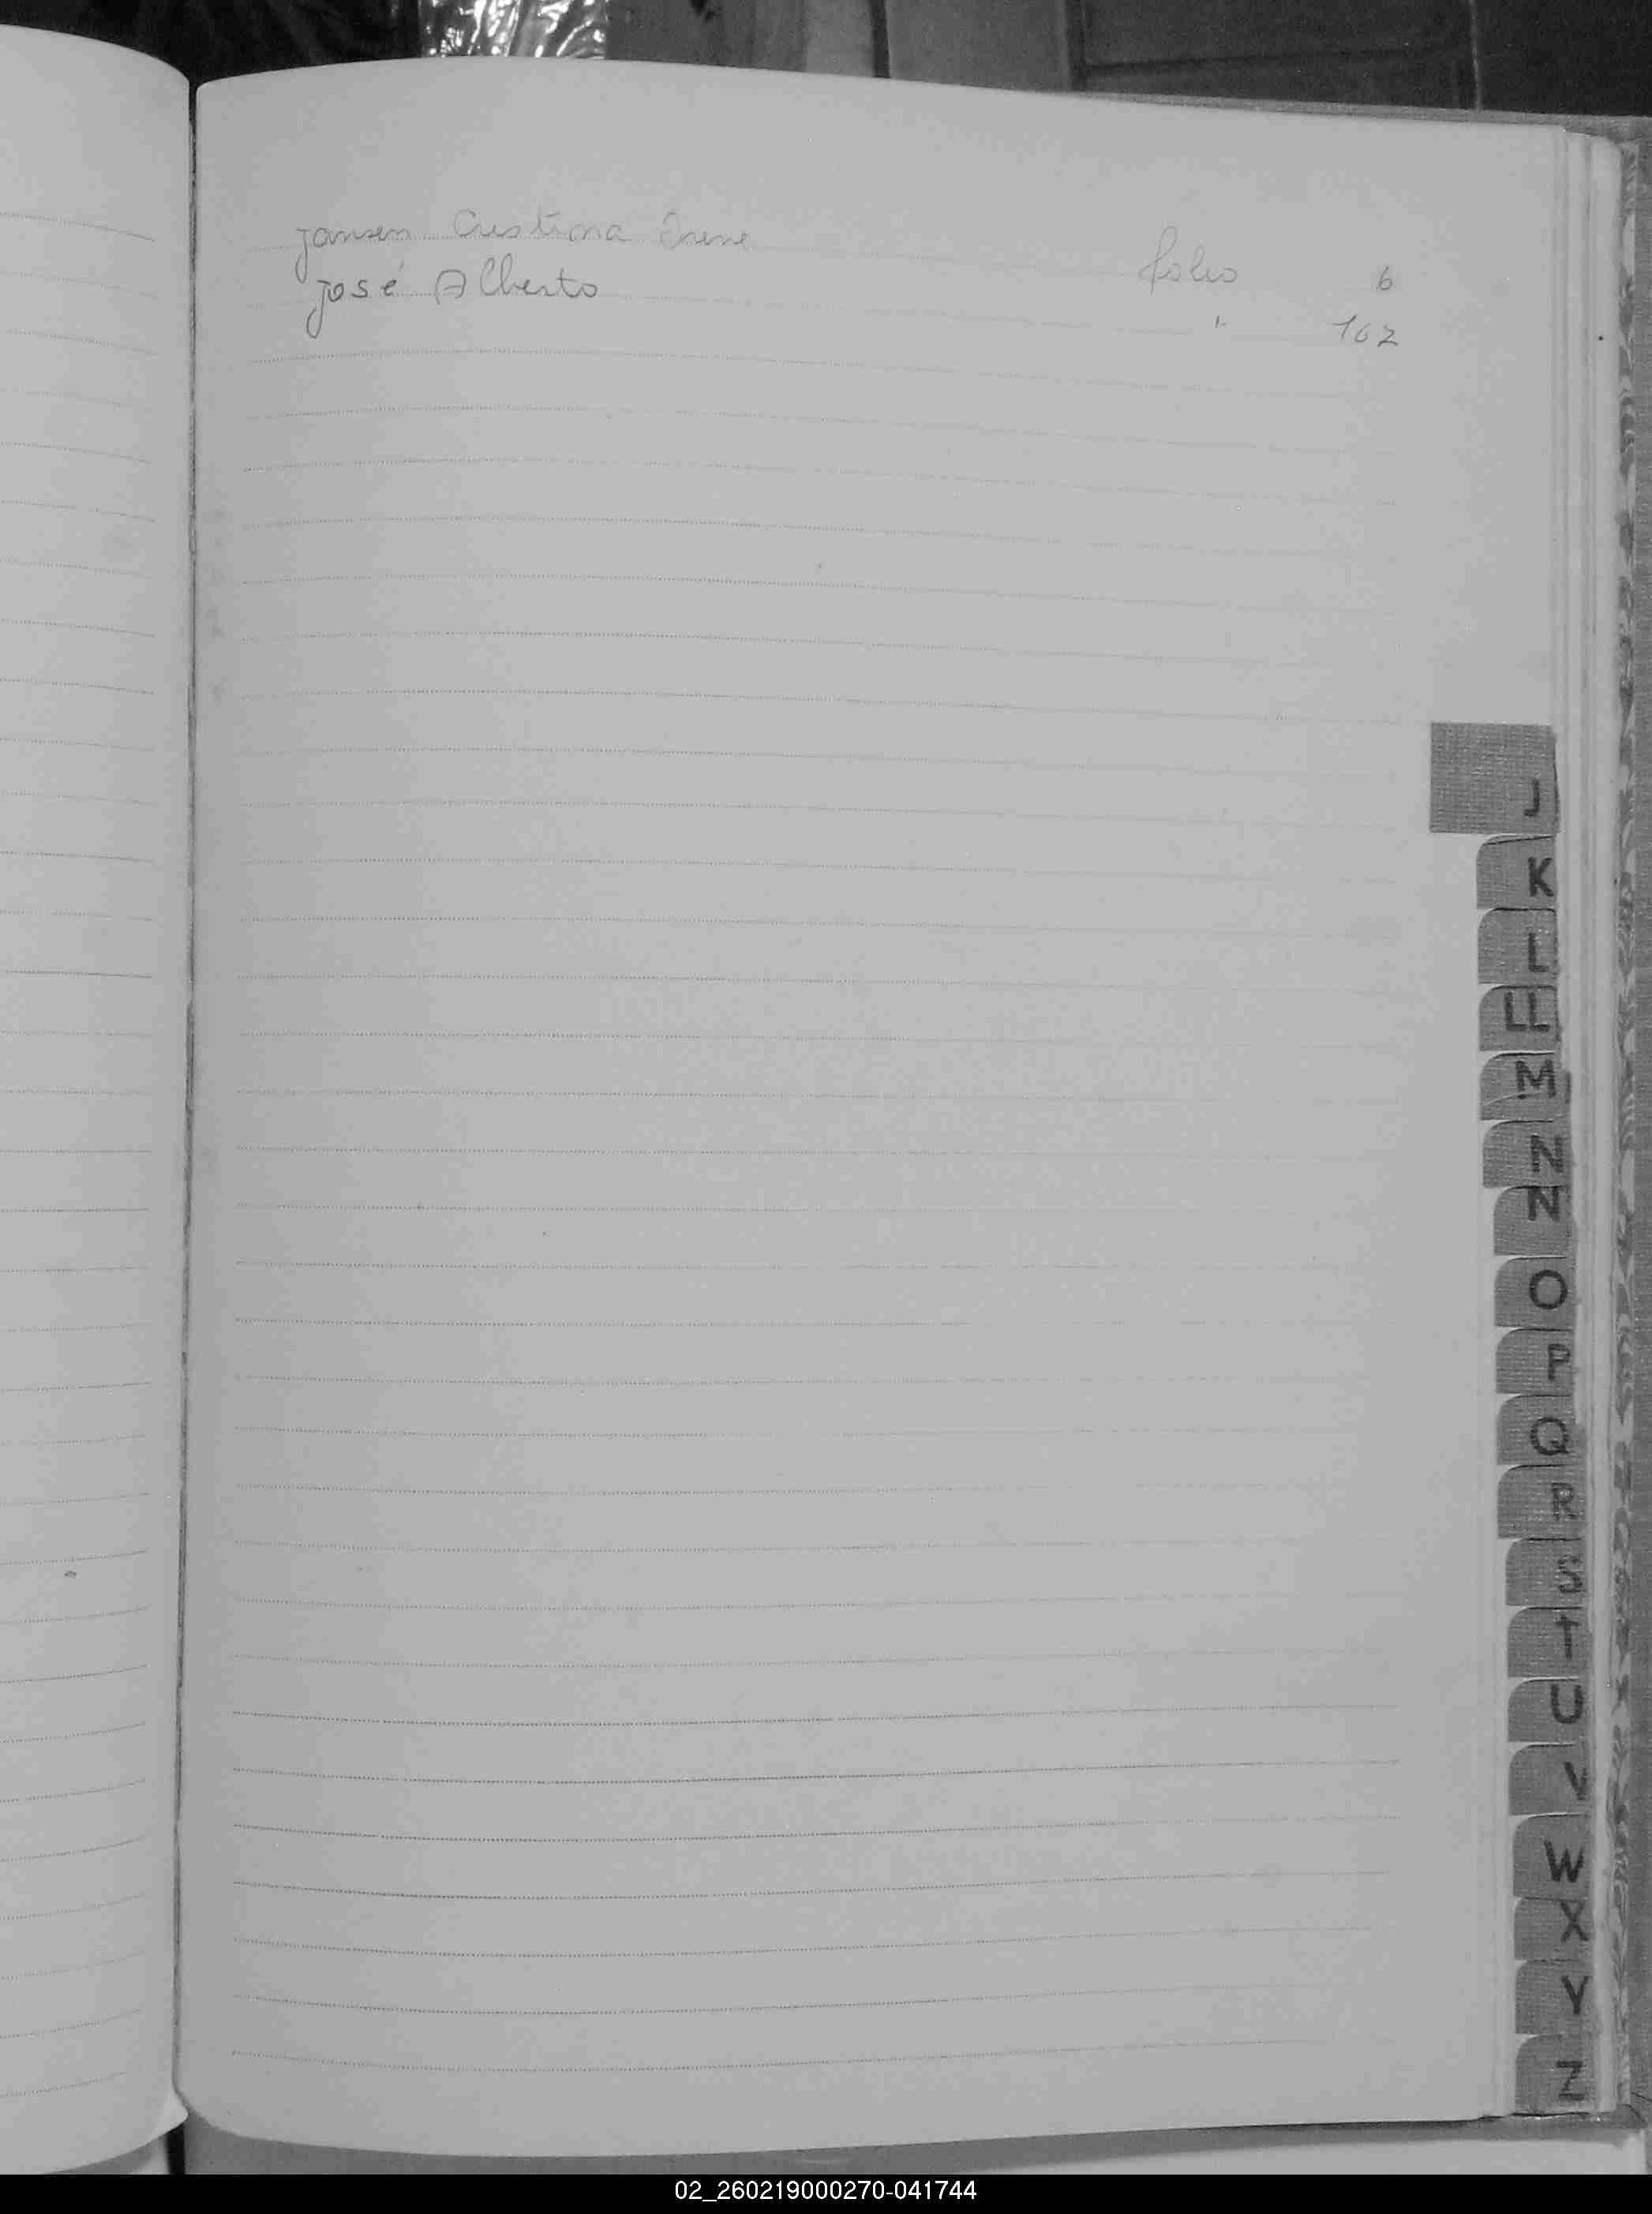 Jansen Cristina Irene folio 6
José Alberto " 162
J
K
L
LL
M
N
N
O
P
Q
R
S
T
U
V
W
X
Y
Z
02_260219000270-041744